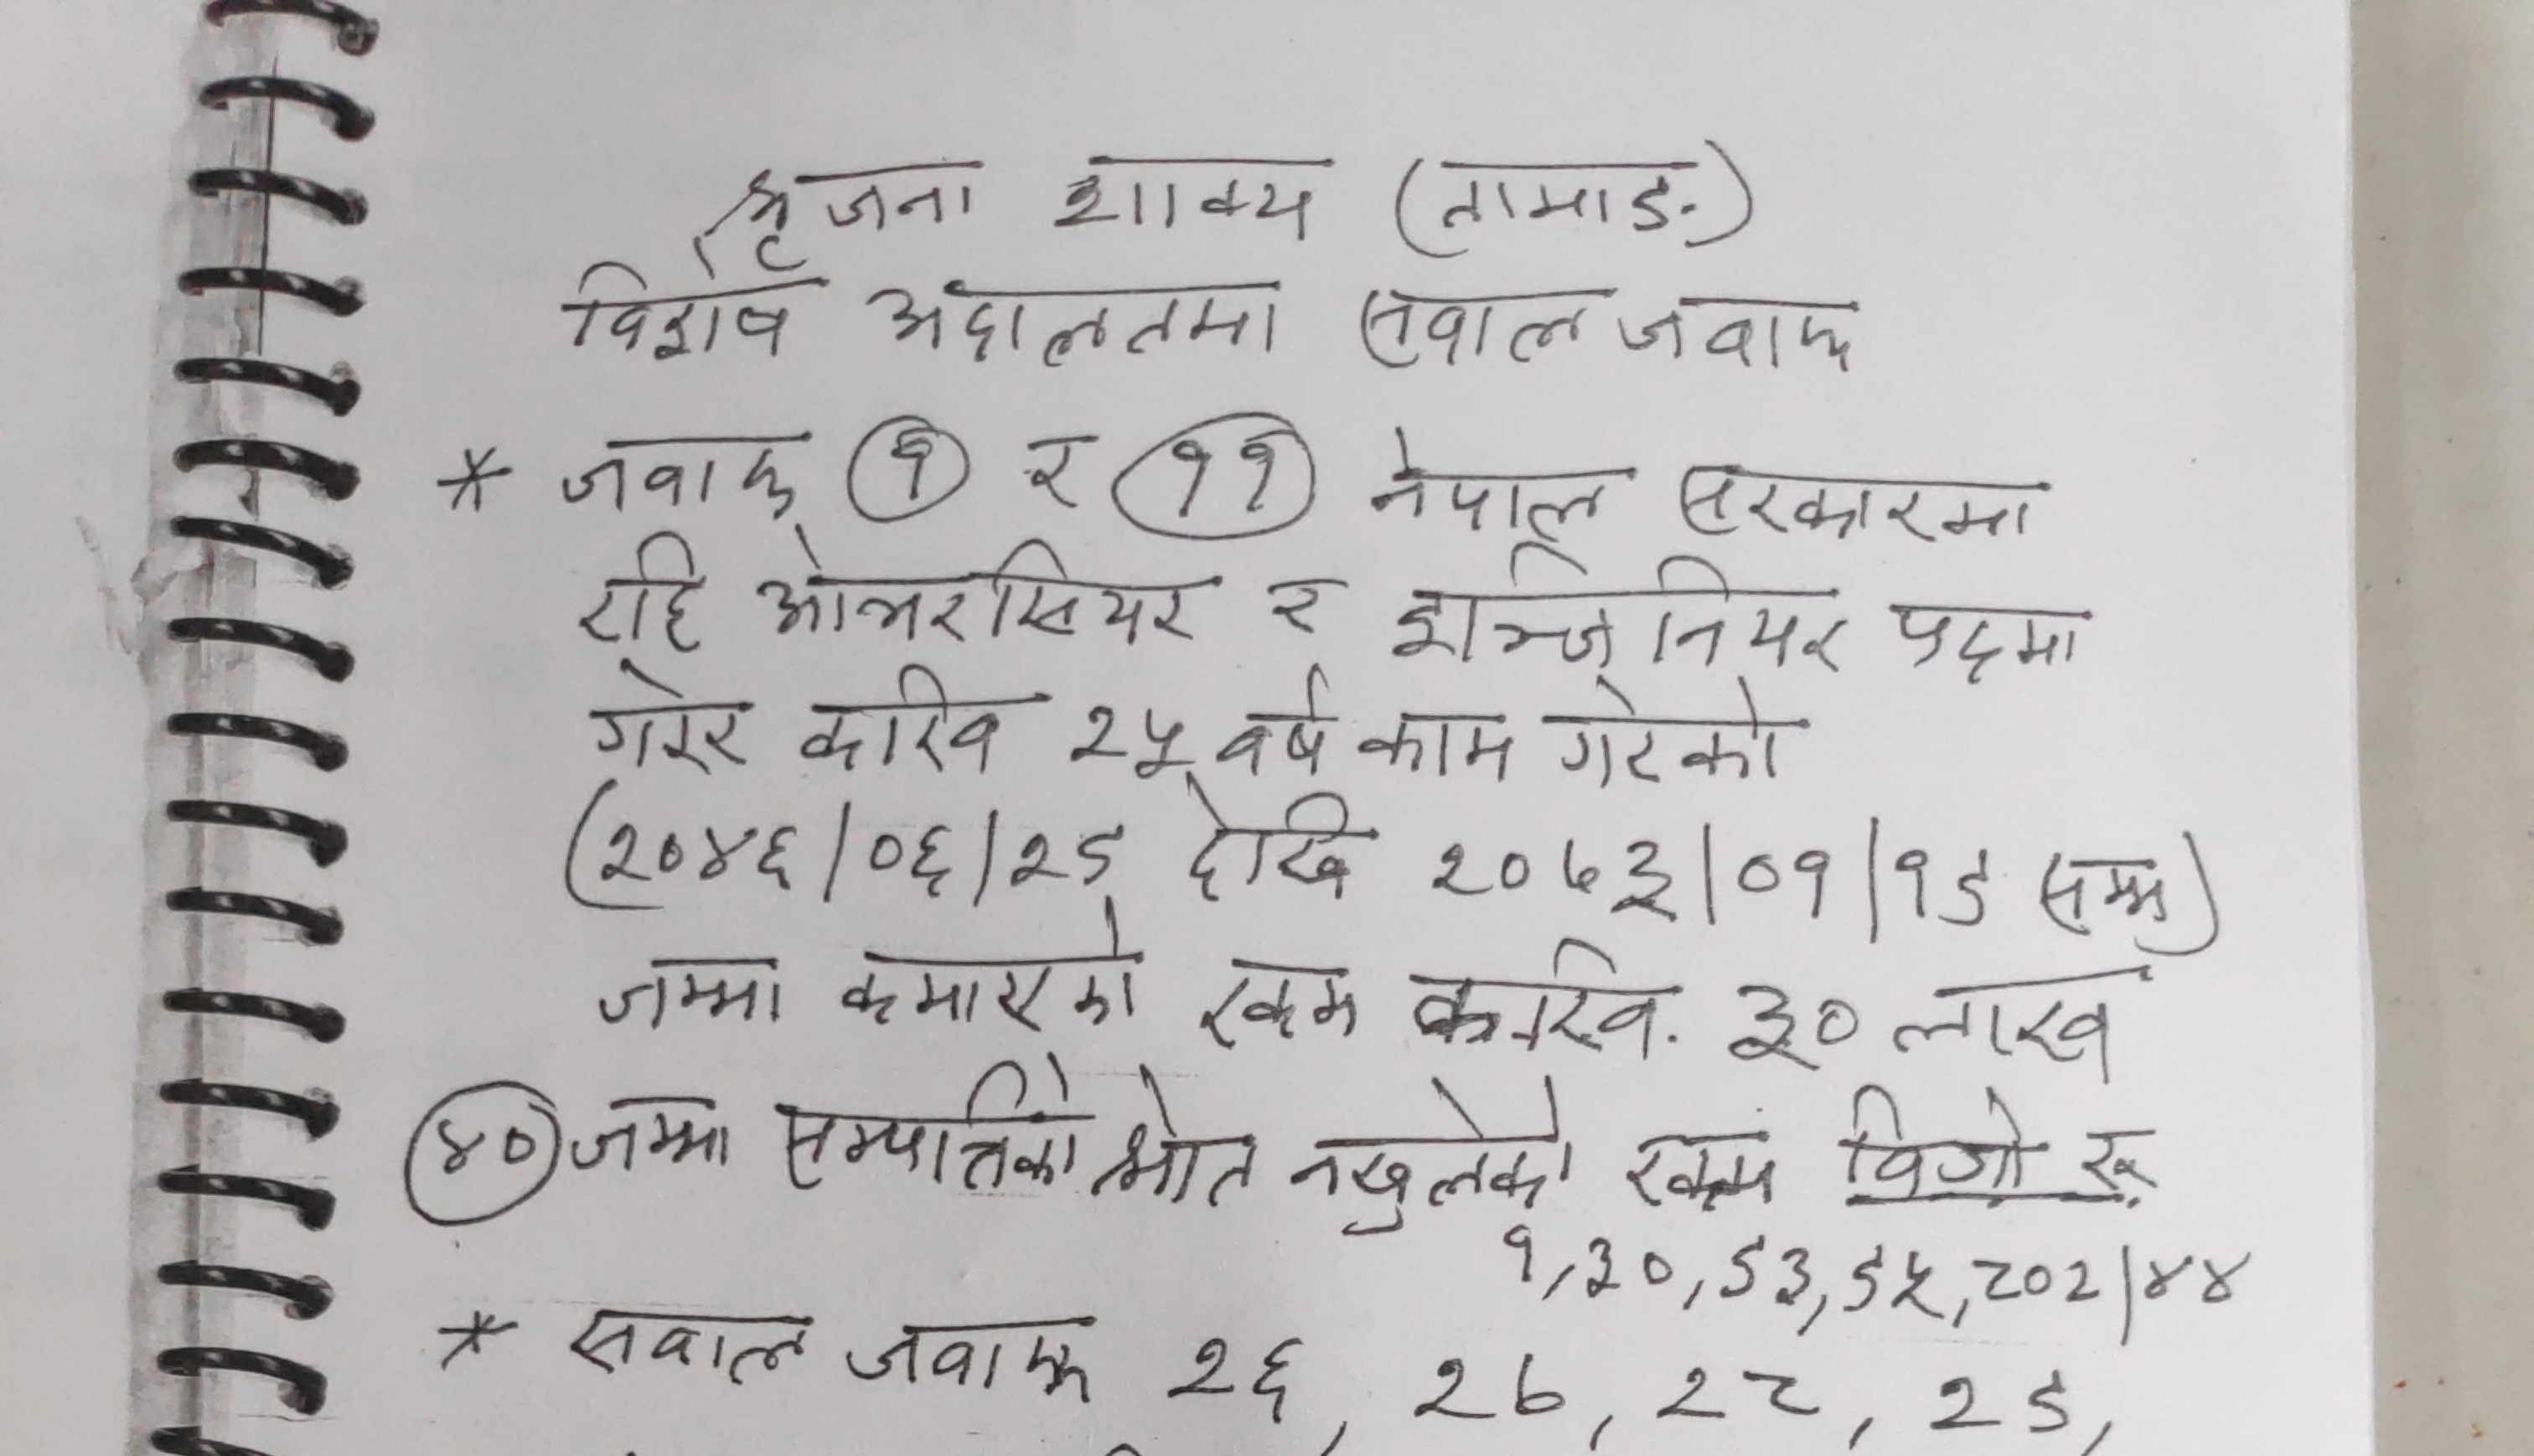 सृजना शाक्य (तामाङ)
विशेष अदालतमा सवाल जवाफ
* जवाफ १ र ११ नेपाल सरकारमा
रहि ओभरसियर र इन्जिनियर पदमा
गरेर करिव २५ वर्ष काम गरेको
(२०४६/०६/२९ देखि २०७३/०१/१९ सम्म)
जम्मा कमाएको रकम करिव. ३० लाख
४० जम्मा सम्पत्तिको श्रोत नखुलेको रकम विगो रू
१,३०,९३,९५,८०२/४४
* सवाल जवाफ २६, २७, २८, २९,